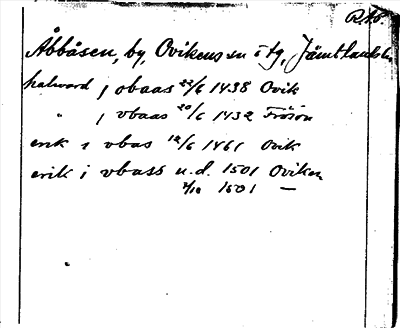 R.Ab.
Åbbåsen, by, Ovikens sn o tg, Jämtlands l.
halvard i obaas 22/6 1438 Ovik
" i vbaas 20/6 1432 Frösön
erik i vbas 12/6 1461 Ovik
erik i vbass u.d. 1501 Oviken
2/10 1501 —